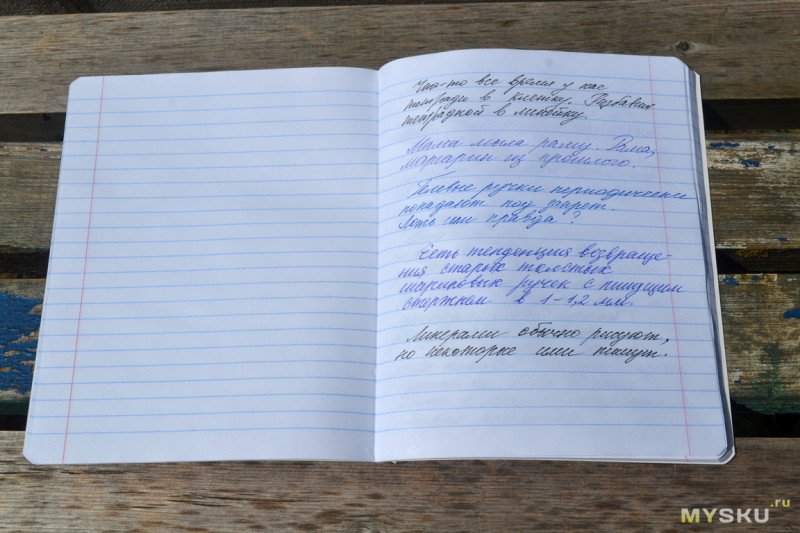 Что-то все время у нас
тетради в клетку. Разбавим
тетрадкой в линейку.
Мама мыла раму. Рама,
маргарин из прошлого.
Гелевые ручки периодически
попадают под запрет.
Ложь или правда?
Есть тенденция возвраще-
ния старых толстых
шариковых ручек с пишущим
стержнем в 1-1,2 мм.
Линерами обычно рисуют,
но некоторые ими пишут.
MYSKU.ru